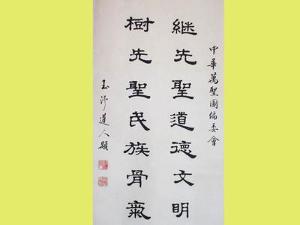 中華萬聖國編委會
継先聖道德文明
樹先聖民族骨氣
玉沛道人題